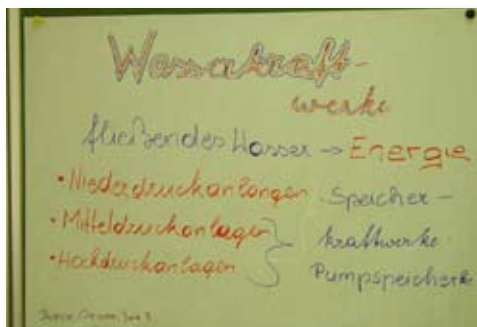 Wasserkraft-
werke
fließendes Wasser → Energie
• Niederdruckanlangen
• Mitteldruckanlagen
• Hochdruckanlagen
Speicher-
kraftwerke
Pumpspeicher